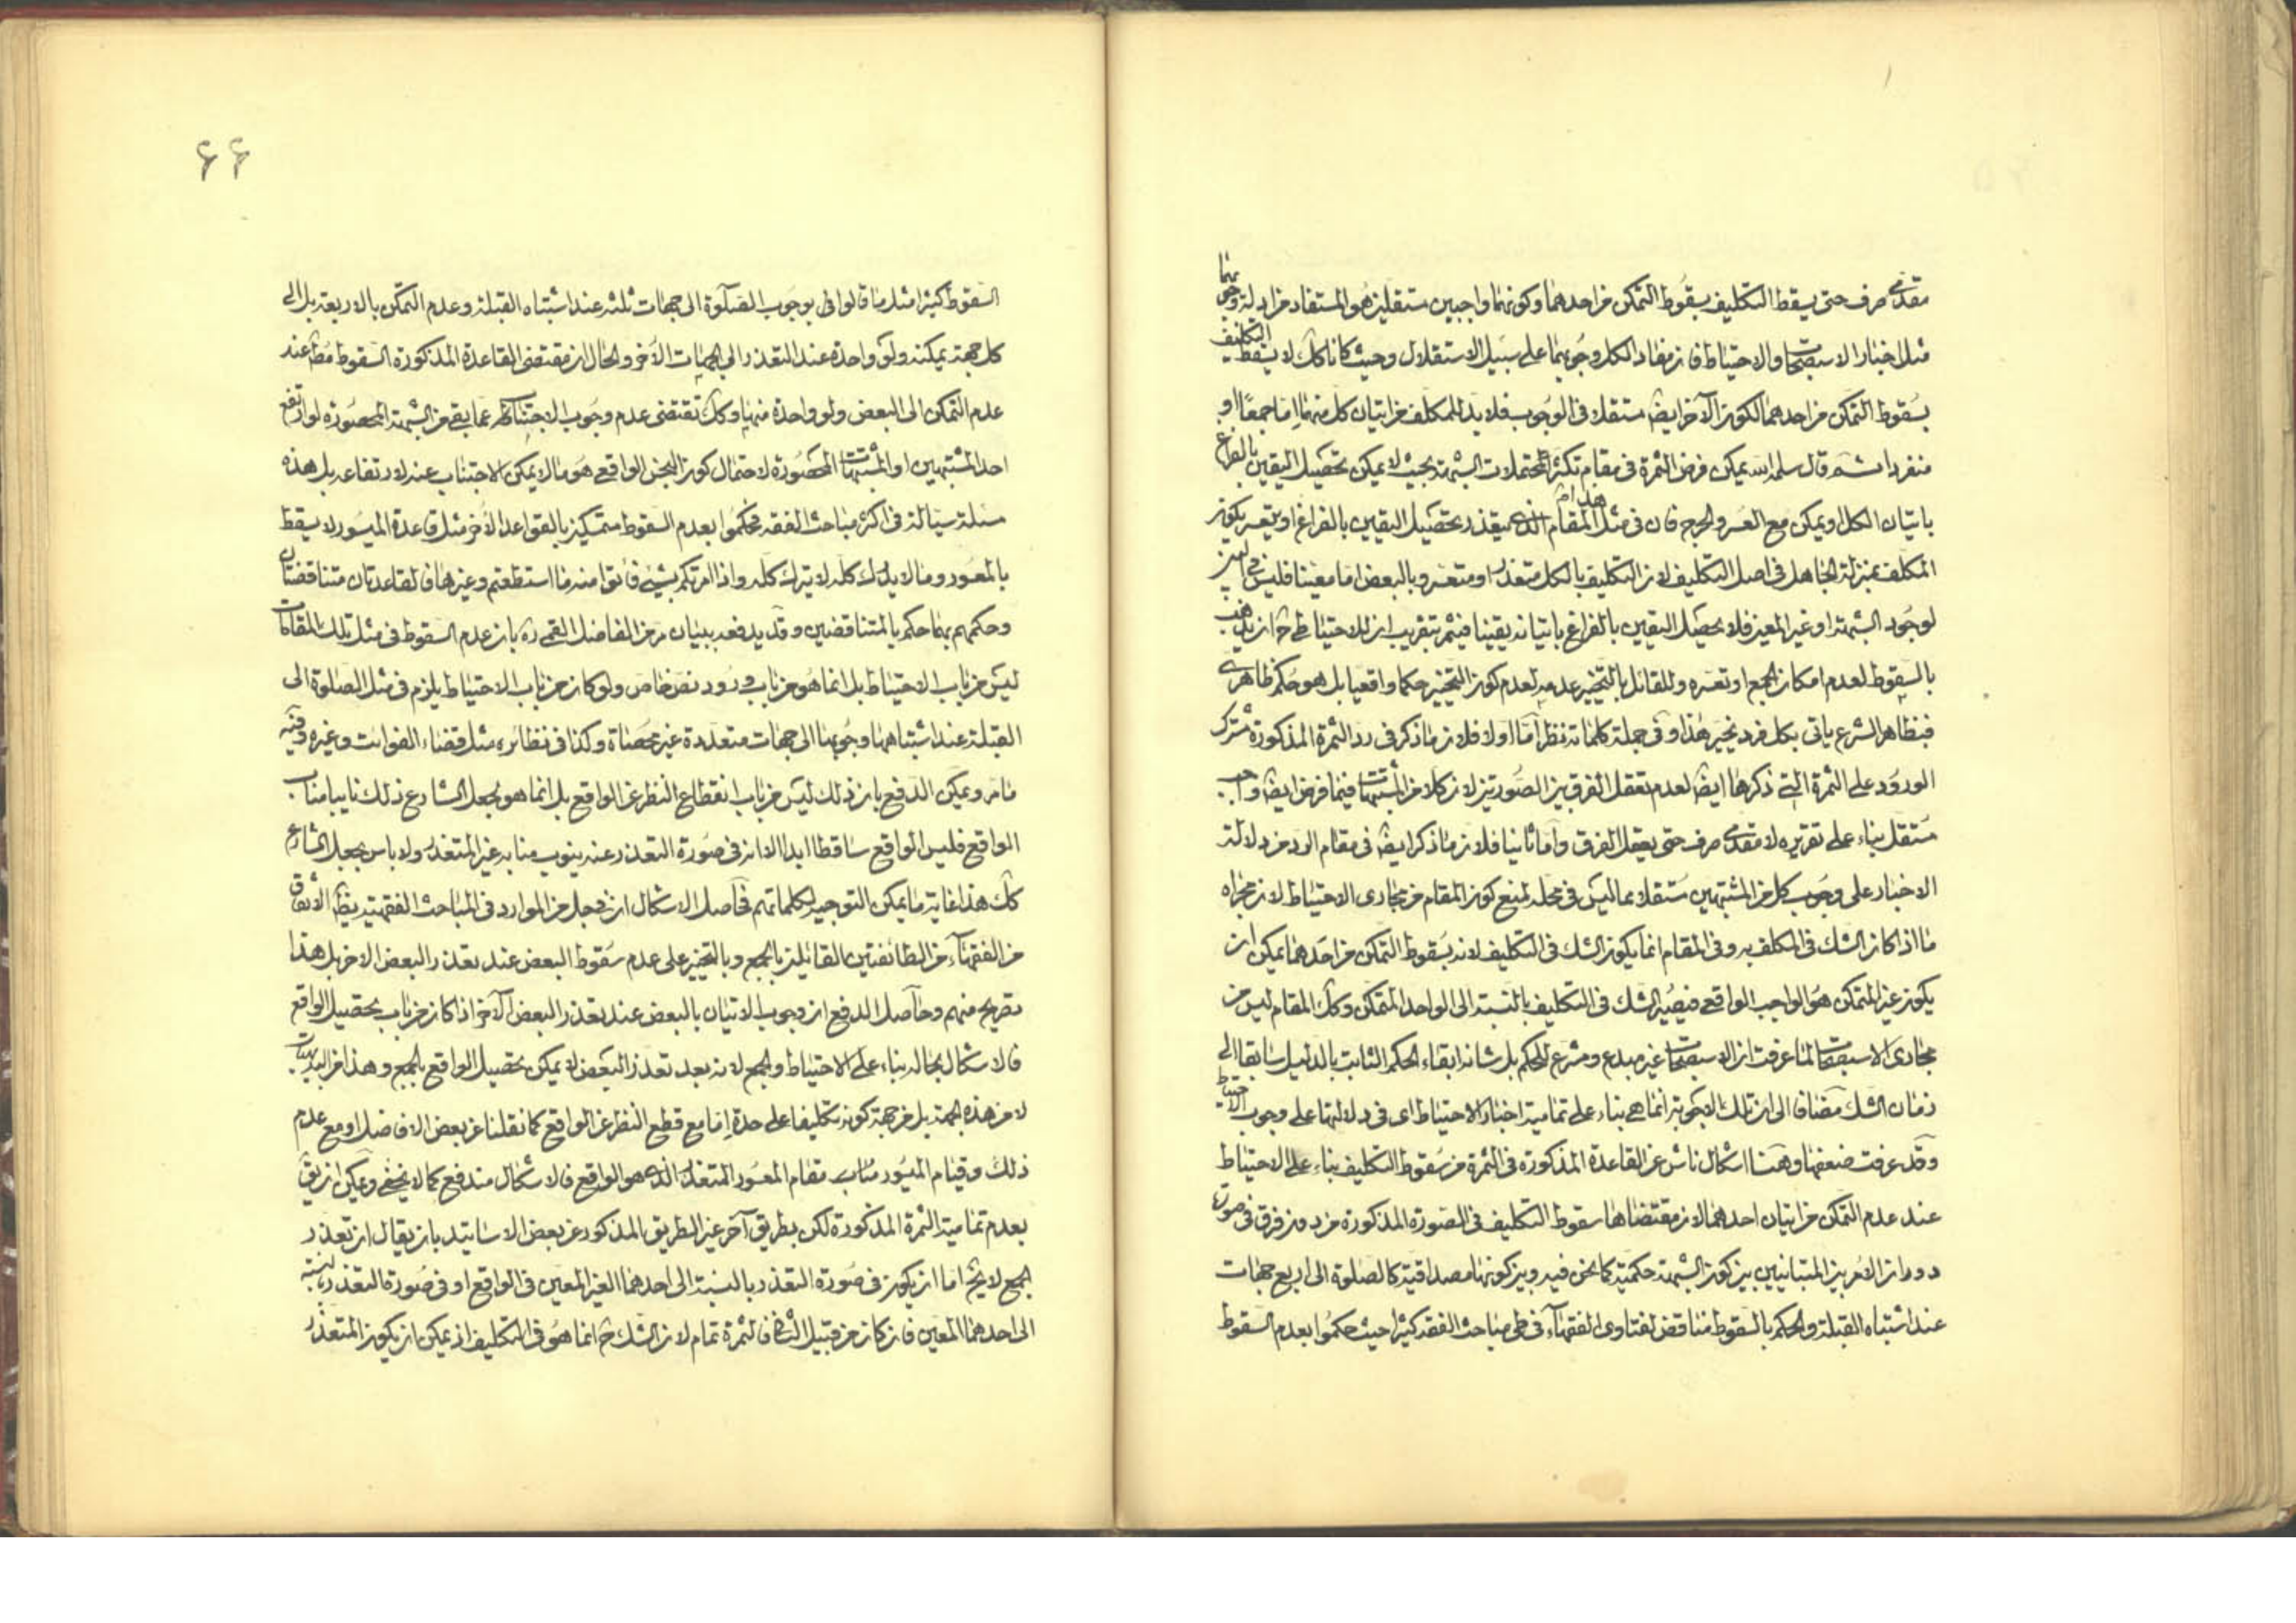 مقدمی صرف حتی یسقط التکلیف بسقوط التمکن من احدهما وکونهما واجبین مستقلین هو المستفاد من ادلة وجوبهما
مثل اخبار الاستصحاب والاحتیاط فان مفاد الکل وجوبهما علی سبیل الاستقلال وحیث کانا کک لا یسقط التکلیف
بسقوط التمکن من احدهما لکون الآخر ایضا مستقلا فی الوجوب فلا بد للمکلف من اتیان کل منهما اما جمعا او
منفردا ثم قال سلمه الله یمکن فرض الثمرة فی مقام تکثر المحتملات الشبهة بحیث لا یمکن تحصیل الیقین بالفراغ
باتیان الکل او یمکن مع العسر والحرج فان فی مثل هذا المقام الذی یتعذر تحصیل الیقین بالفراغ او یتعسر یکون
المکلف بمنزلة الجاهل فی اصل التکلیف لان التکلیف بالکل متعذر او متعسر وبالبعض اما معینا فلیس
لوجود الشبهة او غیر المعین فلا یحصل الیقین بالفراغ باتیانه یقینا فیثمر بتقریب ان للاحتیاطی ح ان یذهب
بالسقوط لعدم امکان الجمع او تعسره وللقائل بالتخییر عدمه لعدم کون التخییر حکما واقعیا بل هو حکم ظاهری
فبظاهر الشرع یاتی بکل فرد تخیر هذا وفی جملة کلماته نظر اما اولا فلان ما ذکر فی رد الثمرة المذکورة مشترک
الورود علی الثمرة التی ذکرها ایضا لعدم تعقل الفرق بین الصورتین لان کلا من المشتبهات فیما فرض ایضا واجب
مستقل بناء علی تقریره لا مقدمی صرف حتی یعقل الفرق واما ثانیا فلان ما ذکر ایضا فی مقام الرد من دلالة
الاخبار علی وجوب کل من المشتبهین مستقلا مما لیس فی محله لمنع کون المقام من مجاری الاحتیاط لان مجراه
ما اذا کان الشک فی المکلف به وفی المقام انما یکون الشک فی التکلیف لانه بسقوط التمکن من احدهما یمکن ان
یکون غیر المتمکن هو الواجب الواقعی فیصیر الشک فی التکلیف بالنسبة الی الواحد المتمکن وکک المقام لیس من
مجاری الاستصحاب لما عرفت ان الاستصحاب غیر مبدع ومشرع للحکم بل شانه ابقاء الحکم الثابت بالدلیل سابقا الی
زمان الشک مضافا الی ان تلک الاجوبة انما هی بناء علی تمامیة اخبار الاحتیاط ای فی دلالتها علی وجوب الاحتیاط
وقد عرفت ضعفها وههنا اشکال ناش عن القاعدة المذکورة فی الثمرة من سقوط التکلیف بناء علی الاحتیاط
عند عدم التمکن من اتیان احدهما لان مقتضاها سقوط التکلیف فی الصورة المذکورة من دون فرق فی صورة
دوران الامر بین المتباینین بین کون الشبهة حکمیة کما نحن فیه وبین کونها مصداقیة کالصلوة الی اربع جهات
عند اشتباه القبلة والحکم بالسقوط مناقض لفتاوی الفقهاء فی طی مباحث الفقه کثیرا حیث حکموا بعدم السقوط
۶۶
السقوط کثیرا مثل ما قالوا فی بوجوب الصلوة الی جهات ثلثه عند اشتباه القبلة وعدم التمکن بالاربعة بل الی
کل جهة یمکنه ولو واحدة عند التعذر الی الجهات الأخر والحال ان مقتضی القاعدة المذکورة السقوط مط عند
عدم التمکن الی البعض ولو واحدة منها وکک تقتضی عدم وجوب الاجتناب عما بقی من الشبهة المحصورة لو ارتفع
احد المشتبهین او المشتبهات المحصورة لاحتمال کون النجس الواقعی هو ما لا یمکن الاجتناب عنه لارتفاعه بل هذه
مسئلة سیالة فی اکثر مباحث الفقه فحکموا بعدم السقوط متمسکین بالقواعد الأخر مثل قاعدة المیسور لا یسقط
بالمعسور وما لا یدرک کله لا یترک کله واذا امرتکم بشیء فأتوا منه ما استطعتم وغیرها فالقاعدتان متناقضتان
وحکمهم بهما حکم بالمتناقضین وقد یدفعه ببیان من الفاضل القمی ره بان عدم السقوط فی مثل تلک المقامات
لیس من باب الاحتیاط بل انما هو من باب ورود نص خاص ولو کان من باب الاحتیاط یلزم فی مثل الصلوة الی
القبلة عند اشتباهها وجوبها الی جهات متعددة غیر محصاة وکذا فی نظائره مثل قضاء الفوائت وغیره وفیه
ما مر ویمکن الدفع بان ذلک لیس من باب انقطاع النظر عن الواقع بل انما هو بجعل الشارع ذلک نایبا مناب
الواقع فلیس الواقع ساقطا ابدا الا انه فی صورة التعذر عنه ینوب منابه غیر المتعذر ولا باس بجعل الشارع
کک هذا غایة ما یمکن التوجیه لکلماتهم فحاصل الاشکال ان فی جل من الموارد فی المباحث الفقهیة یظهر الاتفاق
من الفقهاء من الطائفتین القائلین بالجمع وبالتخییر علی عدم سقوط البعض عند تعذر البعض الاخر بل هذا
تصریح منهم وحاصل الدفع ان وجوب الاتیان بالبعض عند تعذر البعض الآخر اذا کان من باب تحصیل الواقع
فالاشکال بحاله بناء علی الاحتیاط والجمع لانه بعد تعذر البعض لا یمکن تحصیل الواقع بالجمع وهذا من البدیهیات
لا من هذه الجهة بل من جهة کونه تکلیفا علی حدة اما مع قطع النظر عن الواقع کما نقلنا عن بعض الافاضل او مع عدم
ذلک وقیام المیسور مناب مقام المعسور المتعذر الذی هو الواقع فالاشکال مندفع کما لا یخفی ویمکن ان یق
بعدم تمامیة الثمرة المذکورة لکن بطریق آخر غیر الطریق المذکور عن بعض الاساتید بان یقال ان تعذر
الجمع لا یخ اما ان یکون فی صورة التعذر بالنسبة الی احدهما الغیر المعین فی الواقع او فی صورة التعذر بالنسبة
الی احدهما المعین فان کان من قبیل الثانی فالثمرة تمام لان الشک ح انما هو فی التکلیف اذ یمکن ان یکون المتعذر